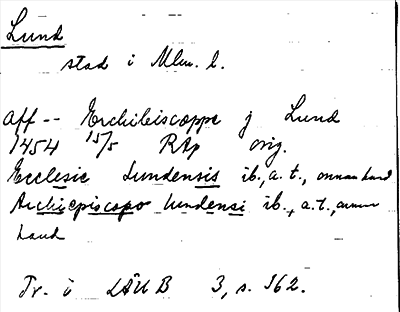 Lund
stad i Mlm. l.
aff -- Erchibiscoppe j Lund
1454 15/5 RAp orig.
Ecclesie Lundensis ib., a. t., annan hand
Archiepiscopo lundensi ib., a. t., annan
hand
Tr. i LÄUB 3, s. 362.